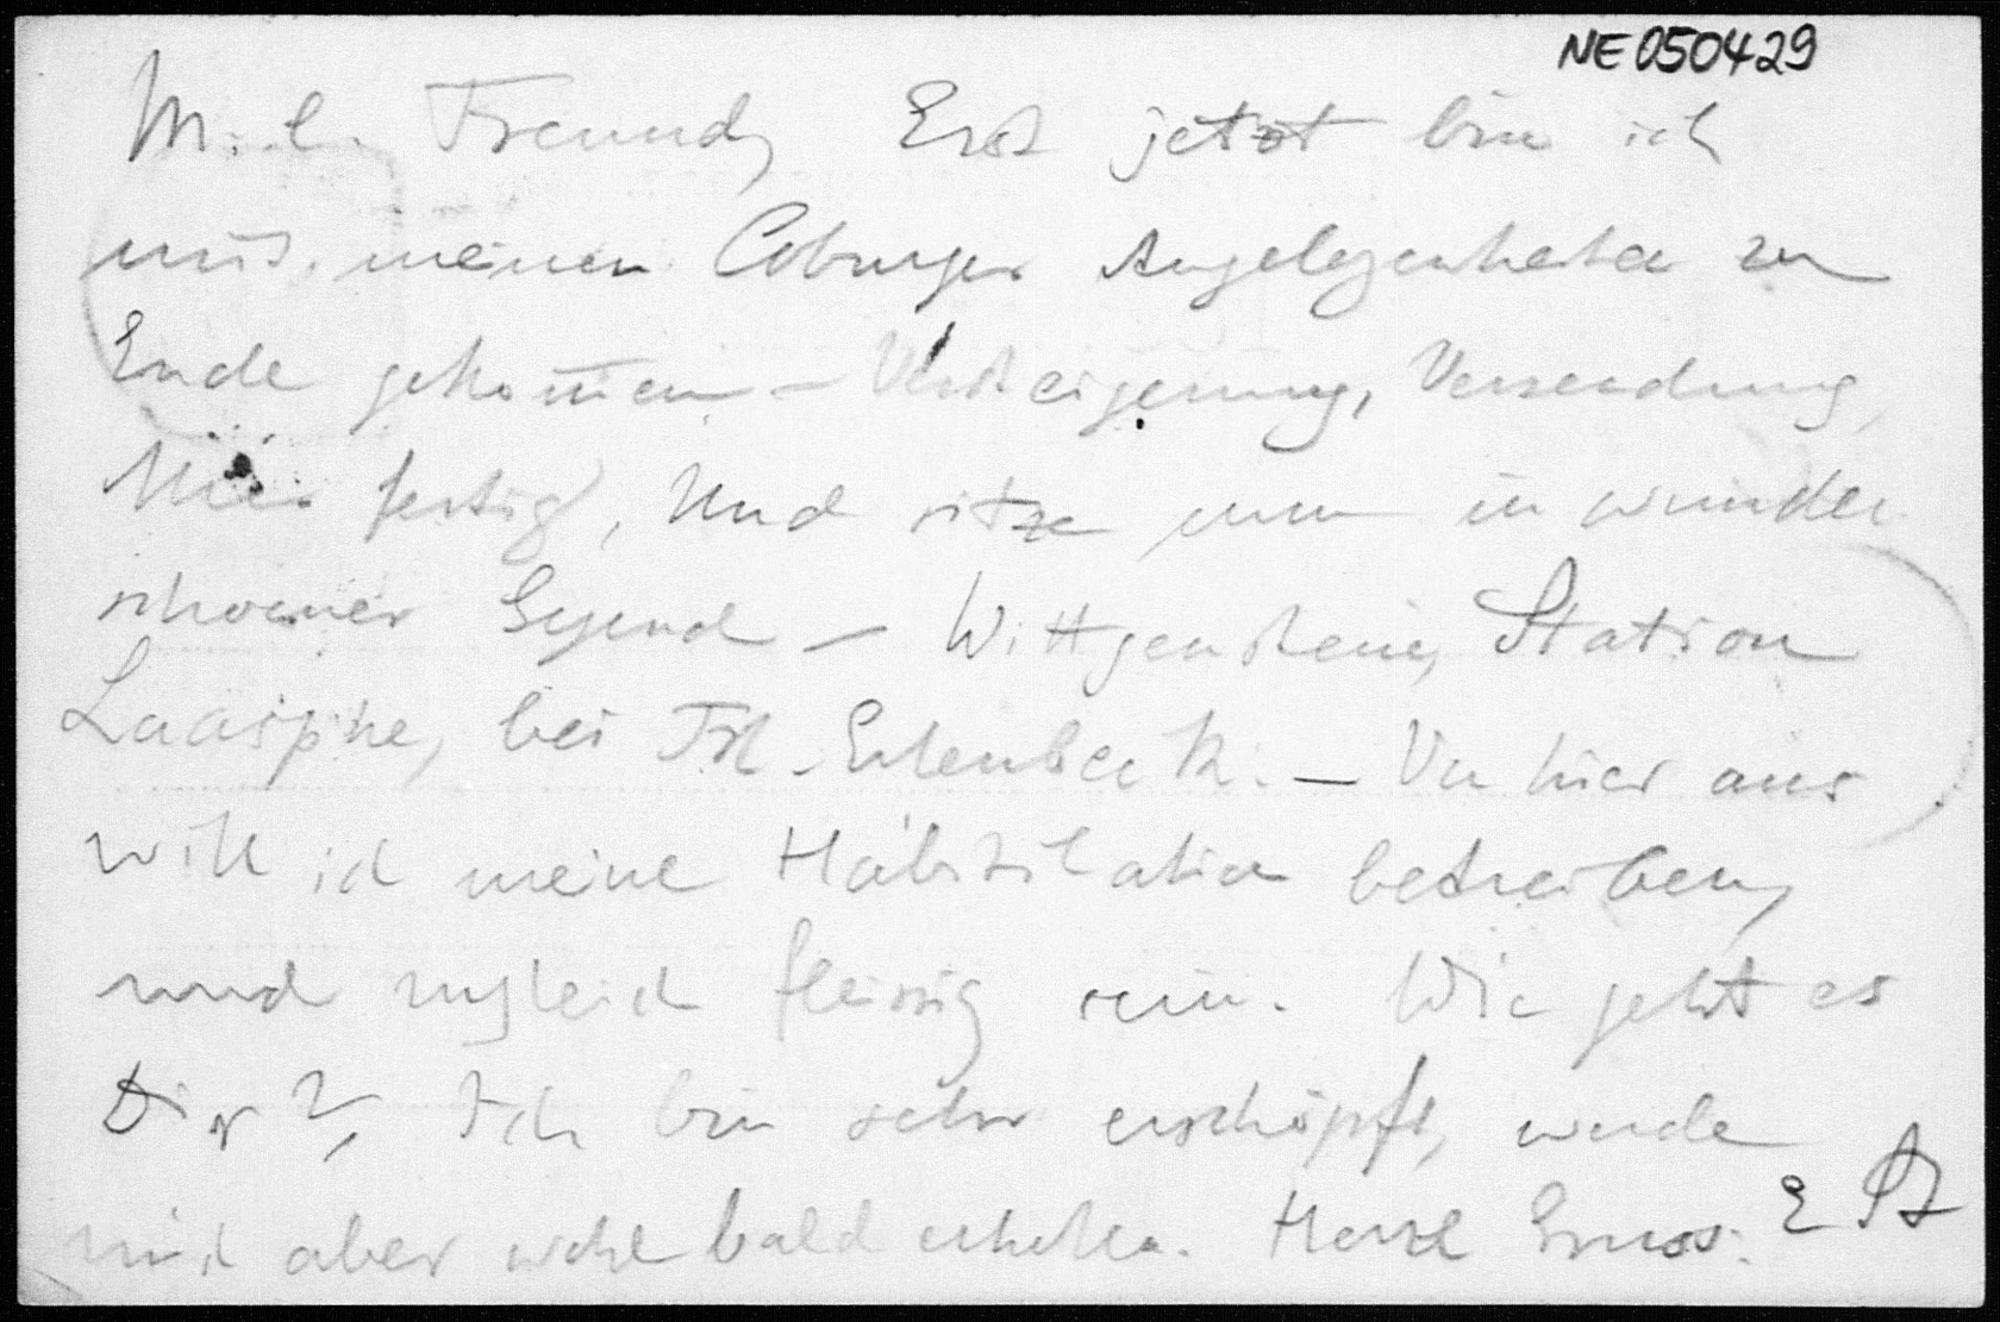 NE050429
M. l. Freund, Erst jetzt bin ich
mit meinen Coburger Angelegenheiten zu
Ende gekom̅en – Versteigerung, Versendung,
Alles fertig, Und sitze nun in wunder
schoener Gegend – Wittgenstein, Station
Laasphe, bei Frl. Erlenbeck. – Von hier aus
will ich meine Habilitation betreiben,
und zugleich fleissig sein. Wie geht es
Dir? Ich bin sehr erschöpft, werde
mich aber wohl bald erholen. Herzl Gruss.